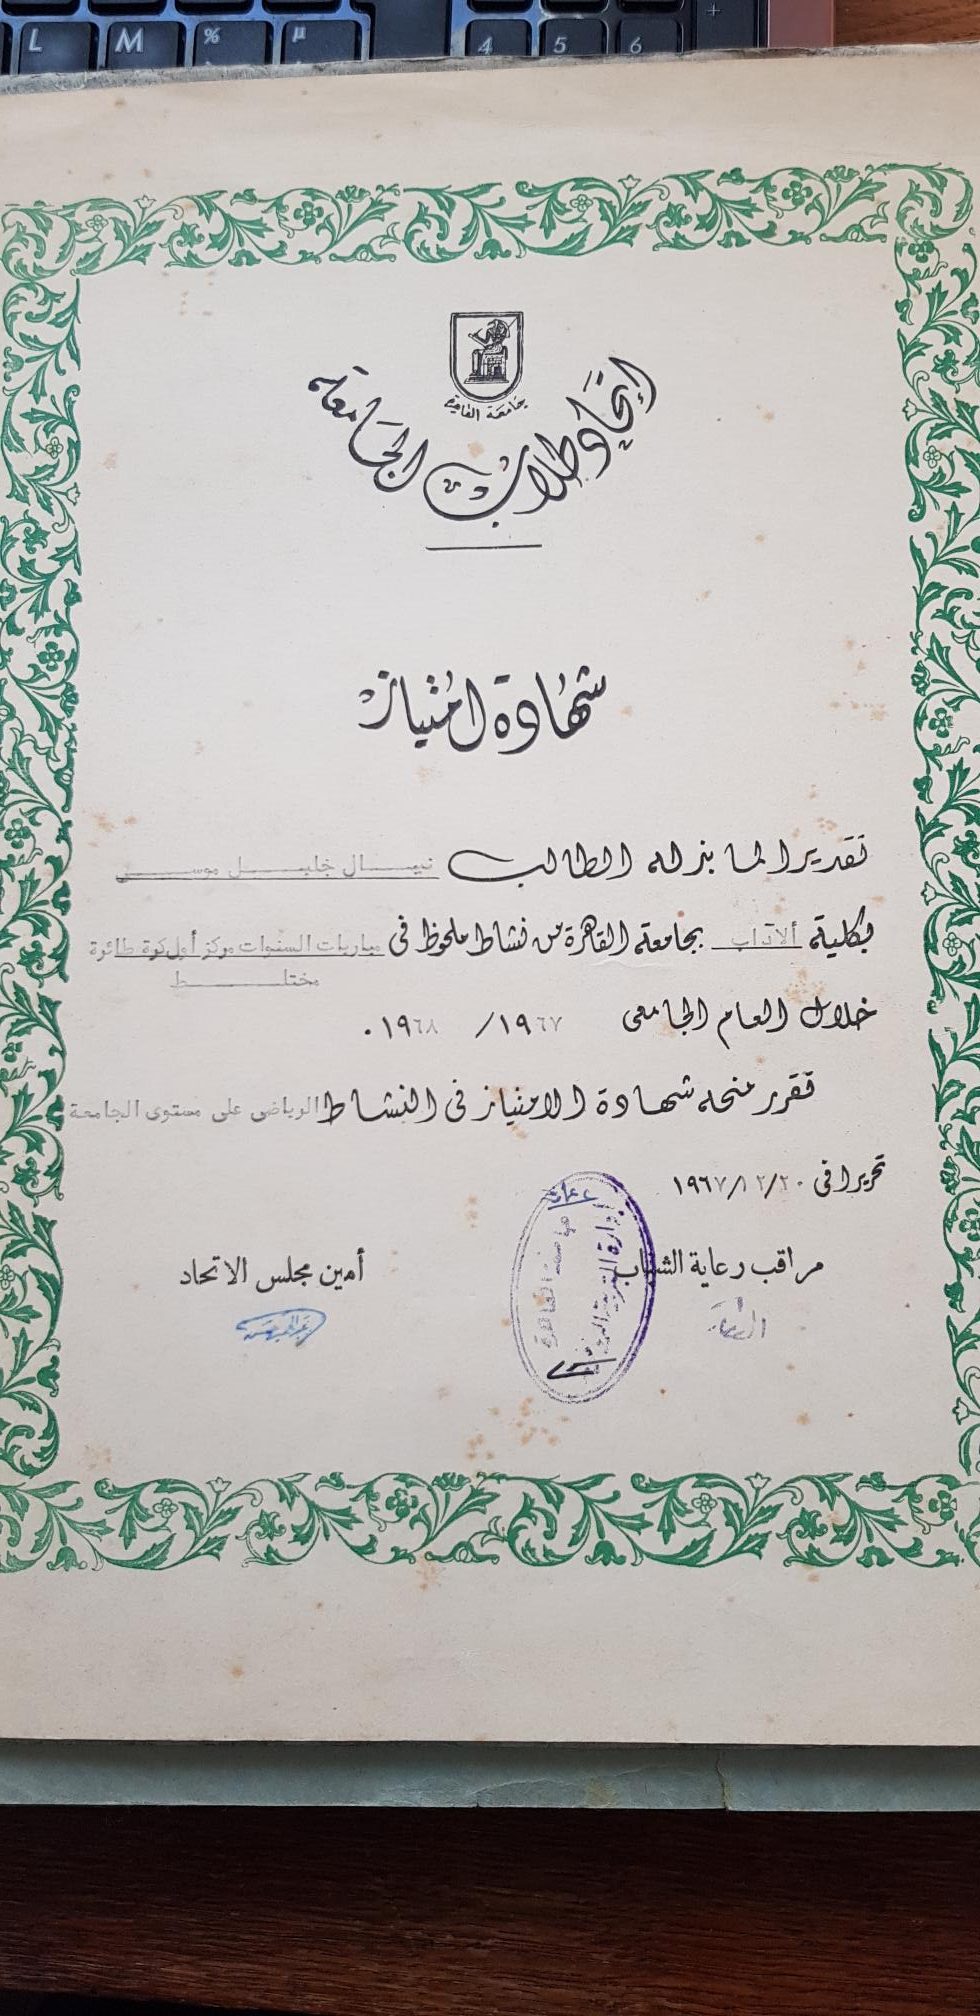 L M % µ 4 5 6 +
جامعة القاهرة
إتحاد طلاب الجامعة
شهادة امتياز
تقديرا لما بذله الطالب نبيـال خليـل موسـى
بكلية الآداب بجامعة القاهرة من نشاط ملحوظ فى مباريات السنوات مركز أول كرة طائرة
مختلـط
خلال العام الجامعى ١٩٦٧/ ١٩٦٨٠
تقرر منحه شهادة الامتياز فى النشاط الرياضى على مستوى الجامعة
تحريرا فى ٢٠/١٢/١٩٦٧
مراقب رعاية الشباب
أمين مجلس الاتحاد
جامعة القاهرة